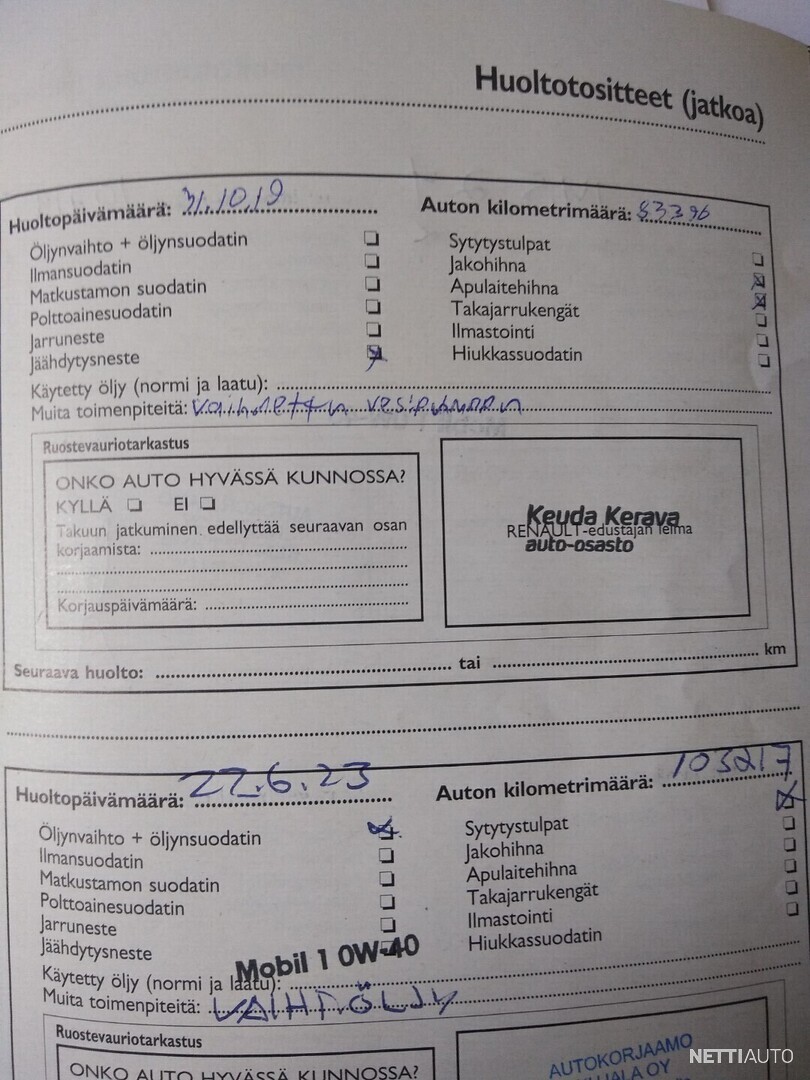 Huoltotositteet (jatkoa)
Huoltopäivämäärä: 31.10.19 Auton kilometrimäärä: 83396
Öljynvaihto + öljynsuodatin Sytytystulpat
Ilmansuodatin Jakohihna
Matkustamon suodatin Apulaitehihna
Polttoainesuodatin Takajarrukengät
Jarruneste Ilmastointi
Jäähdytysneste Hiukkassuodatin
Käytetty öljy (normi ja laatu):
Muita toimenpiteitä: vaihdettu vesipumppu
Ruostevauriotarkastus
ONKO AUTO HYVÄSSÄ KUNNOSSA?
KYLLÄ EI
Takuun jatkuminen edellyttää seuraavan osan
korjaamista:
Korjauspäivämäärä:
Keuda Kerava
RENAULT-edustajan leima
auto-osasto
Seuraava huolto: tai km
Huoltopäivämäärä: 22.6.23 Auton kilometrimäärä: 103217
Öljynvaihto + öljynsuodatin Sytytystulpat
Ilmansuodatin Jakohihna
Matkustamon suodatin Apulaitehihna
Polttoainesuodatin Takajarrukengät
Jarruneste Ilmastointi
Jäähdytysneste Hiukkassuodatin
Mobil 1 0W-40
Käytetty öljy (normi ja laatu):
Muita toimenpiteitä: VAIHT.ÖLJY
Ruostevauriotarkastus
ONKO AUTO HYVÄSSÄ KUNNOSSA?
AUTOKORJAAMO
OY
NETTIAUTO